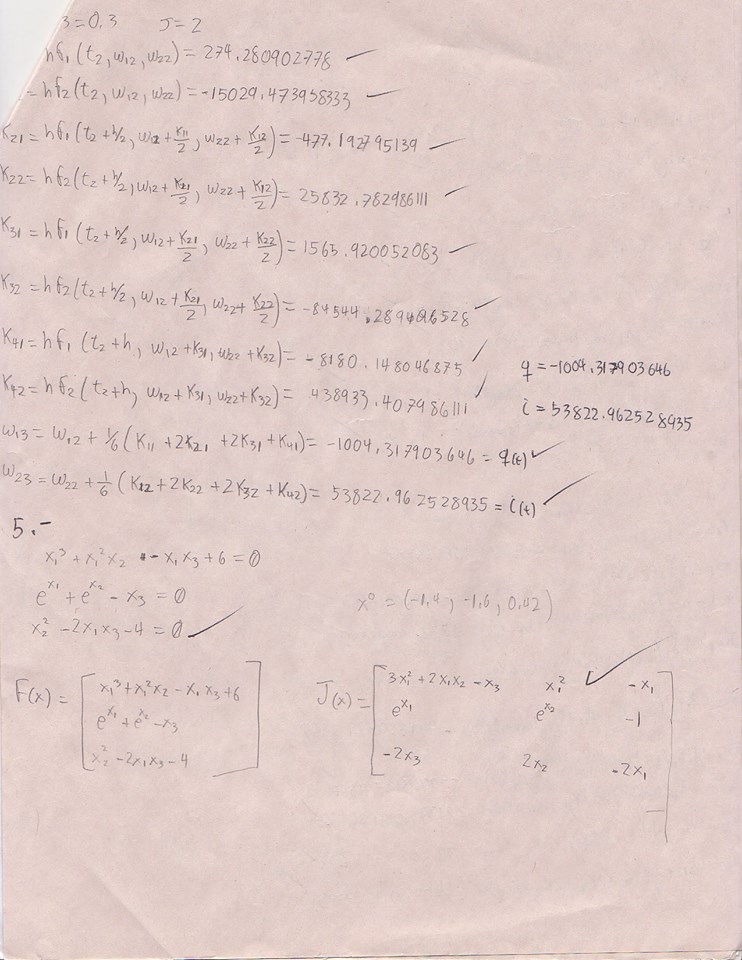 3 = 0.3 J = 2
hf₁(t₂, w₁₂, w₂₂) = 274.280902778 ✓
= hf₂(t₂, w₁₂, w₂₂) = -15029.473958333 ✓
K₂₁ = hf₁(t₂ + h/2, w₁₂ + K₁₁/2, w₂₂ + K₁₂/2) = -477.192795139 ✓
K₂₂ = hf₂(t₂ + h/2, w₁₂ + K₂₁/2, w₂₂ + K₁₂/2) = 25832.782986111 ✓
K₃₁ = hf₁(t₂ + h/2, w₁₂ + K₂₁/2, w₂₂ + K₂₂/2) = 1563.920052083 ✓
K₃₂ = hf₂(t₂ + h/2, w₁₂ + K₂₁/2, w₂₂ + K₂₂/2) = -84544.289406528 ✓
K₄₁ = hf₁(t₂ + h, w₁₂ + K₃₁, w₂₂ + K₃₂) = -8180.148046875 ✓
q = -1004.317903646
K₄₂ = hf₂(t₂ + h, w₁₂ + K₃₁, w₂₂ + K₃₂) = 438933.407986111 ✓
i = 53822.962528935
w₁₃ = w₁₂ + 1/6 (K₁₁ + 2K₂₁ + 2K₃₁ + K₄₁) = -1004.317903646 = q(t) ✓
w₂₃ = w₂₂ + 1/6 (K₁₂ + 2K₂₂ + 2K₃₂ + K₄₂) = 53822.962528935 = i(t) ✓
5.-
x₁³ + x₁²x₂ - x₁x₃ + 6 = 0
e^x₁ + e^x₂ - x₃ = 0
x⁰ = (-1.4, -1.6, 0.42)
x₂² - 2x₁x₃ - 4 = 0 ✓
F(x) = [x₁³ + x₁²x₂ - x₁x₃ + 6
e^x₁ + e^x₂ - x₃
x₂² - 2x₁x₃ - 4]
J(x) = [3x₁² + 2x₁x₂ - x₃ x₁² ✓ -x₁
e^x₁ e^x₂ -1
-2x₃ 2x₂ -2x₁]